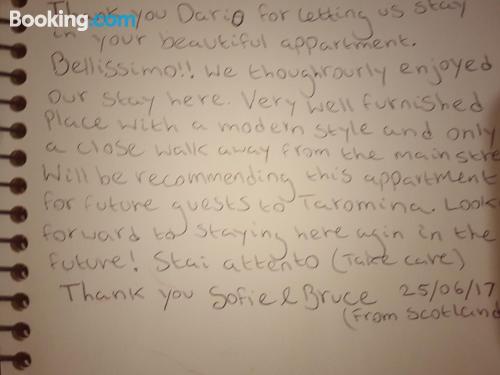 Booking.com
Thank you Dario for letting us stay
in your beautiful appartment.
Bellissimo!! We thoughrourly enjoyed
our stay here. Very well furnished
place with a modern style and only
a close walk away from the main stre
Will be recommending this appartment
for future guests to Taromina. Look
forward to staying here agin in the
future! Stai attento (Take care)
Thank you Sofie & Bruce 25/06/17
(From Scotland